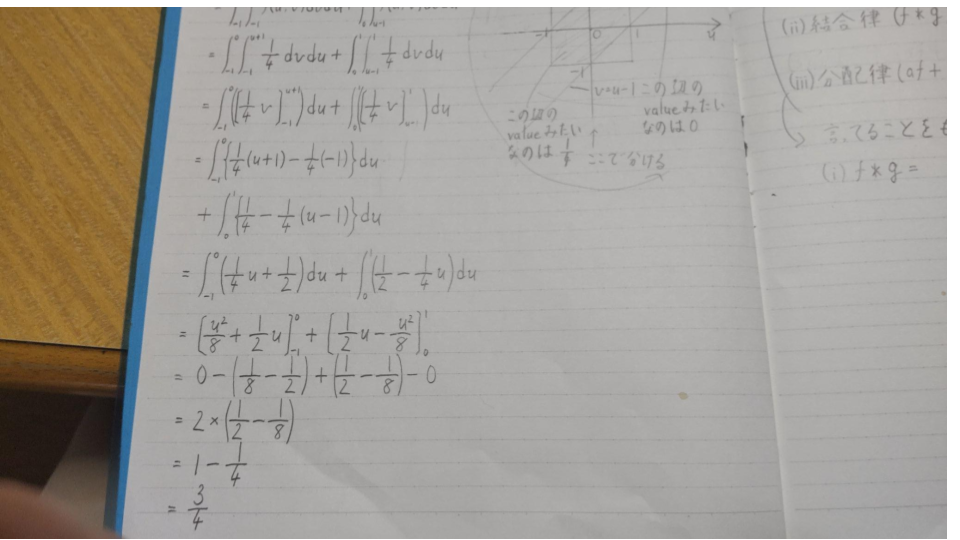 = ∫_{-1}^{0} ∫_{-1}^{u+1} 1/4 dvdu + ∫_{0}^{1} ∫_{u-1}^{1} 1/4 dvdu
= ∫_{-1}^{0} ([1/4 v]_{-1}^{u+1}) du + ∫_{0}^{1} ([1/4 v]_{u-1}^{1}) du
= ∫_{-1}^{0} {1/4 (u+1) - 1/4 (-1)} du
+ ∫_{0}^{1} {1/4 - 1/4 (u-1)} du
= ∫_{-1}^{0} (1/4 u + 1/2) du + ∫_{0}^{1} (1/2 - 1/4 u) du
= [u²/8 + 1/2 u]_{-1}^{0} + [1/2 u - u²/8]_{0}^{1}
= 0 - (1/8 - 1/2) + (1/2 - 1/8) - 0
= 2 × (1/2 - 1/8)
= 1 - 1/4
= 3/4
-1 0 1 u
-1
v=u-1
この
valueみたい
なのは 1/4
ここで分ける
この
valueみたい
なのは0
(ii) 結合律 (f * g
(iii) 分配律 (af +
言ってることを
(i) f * g =